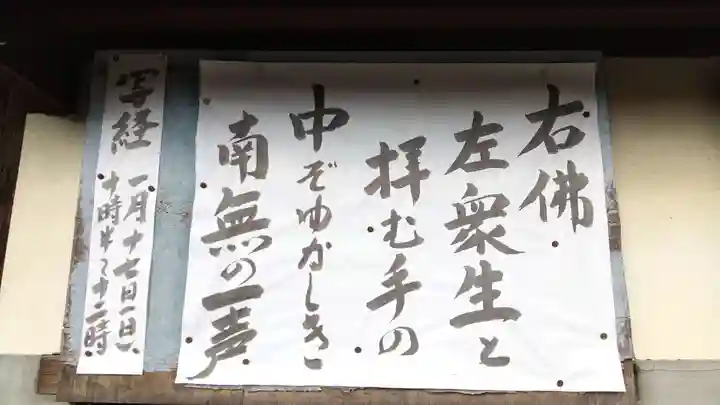 右佛
左衆生と
拝む手の
中ぞゆかしき
南無の一声
写経
一月十七日(日)、
十時半〜十二時